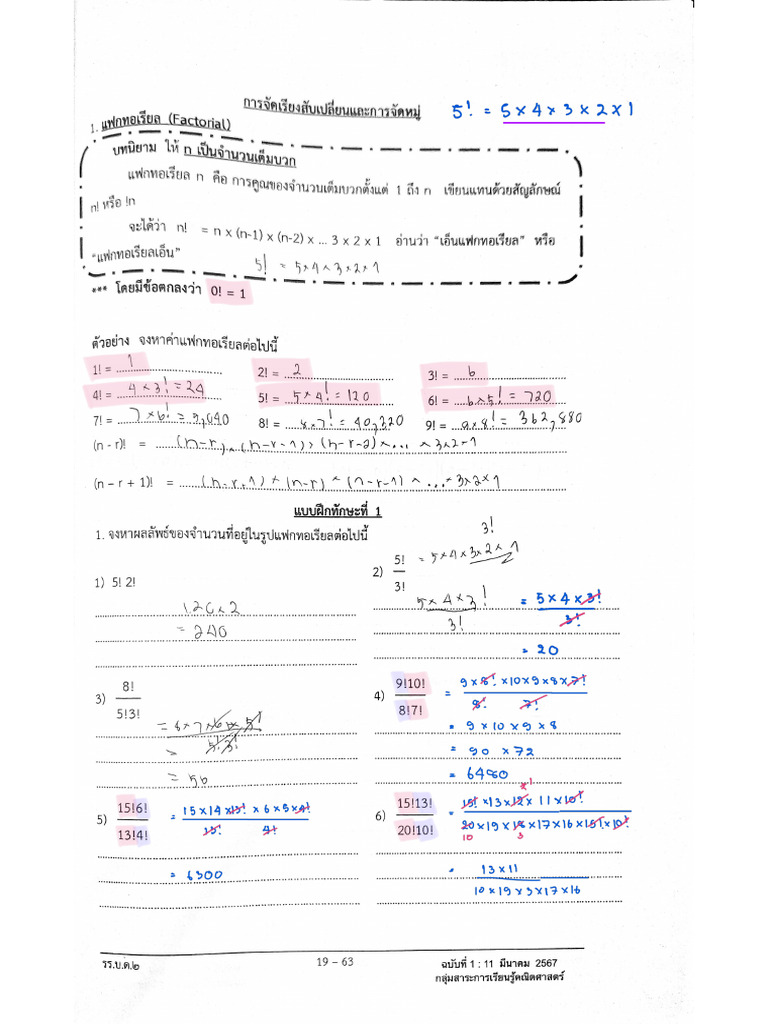 การจัดเรียงสับเปลี่ยนและการจัดหมู่ 5! = 5×4×3×2×1
1. แฟกทอเรียล (Factorial)
บทนิยาม ให้ n เป็นจำนวนเต็มบวก
แฟกทอเรียล n คือ การคูณของจำนวนเต็มบวกตั้งแต่ 1 ถึง n เขียนแทนด้วยสัญลักษณ์
n! หรือ !n
จะได้ว่า n! = n x (n-1) x (n-2) x ... 3 x 2 x 1 อ่านว่า "เอ็นแฟกทอเรียล" หรือ
"แฟกทอเรียลเอ็น"
5! = 5×4×3×2×1
*** โดยมีข้อตกลงว่า 0! = 1
ตัวอย่าง จงหาค่าแฟกทอเรียลต่อไปนี้
1! = 1 2! = 2 3! = 6
4! = 4×3! = 24 5! = 5×4! = 120 6! = 6×5! = 720
7! = 7×6! = 5,040 8! = 8×7! = 40,320 9! = 9×8! = 362,880
(n - r)! = (n-r)×(n-r-1)×(n-r-2)×... ×3×2×1
(n – r + 1)! = (n-r+1)×(n-r)×(n-r-1)×...×3×2×1
แบบฝึกทักษะที่ 1
1. จงหาผลลัพธ์ของจำนวนที่อยู่ในรูปแฟกทอเรียลต่อไปนี้
1) 5! 2!
120×2
= 240
3!
2) 5!/3! = 5×4×3×2×1
5×4×3!/3! = 5×4×3!/3!
= 20
3) 8!/5!3!
= 8×7×6×5!/5!3!
=
= 56
4) 9!10!/8!7! = 9×8!×10×9×8×7!/8! 7!
= 9×10×9×8
= 90 ×72
= 6480
5) 15!6!/13!4! = 15×14×13!×6×5×4!/13! 4!
= 6300
6) 15!13!/20!10! = 15!×13×12×11×10!/20×19×18×17×16×15!×10!
10 3
= 13×11/10×19×3×17×16
รร.บ.ด.๒ 19 – 63 ฉบับที่ 1 : 11 มีนาคม 2567
กลุ่มสาระการเรียนรู้คณิตศาสตร์